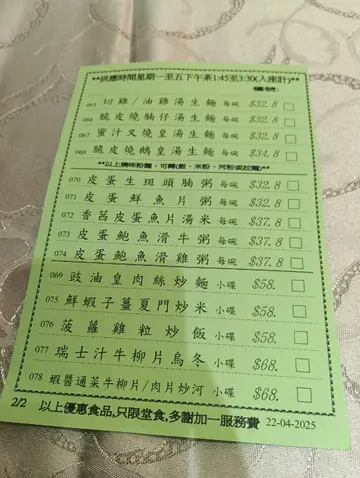 **供應時間星期一至五下午茶1:45至3:30(入座計)**
065 切雞/油雞湯生麵 每碗 $32.8
066 脆皮燒腩仔湯生麵 每碗 $32.8
067 蜜汁叉燒皇湯生麵 每碗 $32.8
068 脆皮燒鵝皇湯生麵 每碗 $34.8
**以上燒味粉麵，可轉(飯，米粉，河粉或拉麵)**
070 皮蛋生斑頭腩粥 每碗 $32.8
071 皮蛋鮮魚片粥 每碗 $32.8
072 香茜皮蛋魚片湯米 每碗 $37.8
073 皮蛋鮑魚滑牛粥 每碗 $37.8
074 皮蛋鮑魚滑雞粥 每碗 $37.8
069 豉油皇肉絲炒麵 小碟 $58.
075 鮮蝦子薑夏門炒米 小碟 $58.
076 菠蘿雞粒炒飯 小碟 $58.
077 瑞士汁牛柳片烏冬 小碟 $68.
078 蝦醬通菜牛柳片/肉片炒河 小碟 $68.
2/2 以上優惠食品,只限堂食,多謝加一服務費 22-04-2025